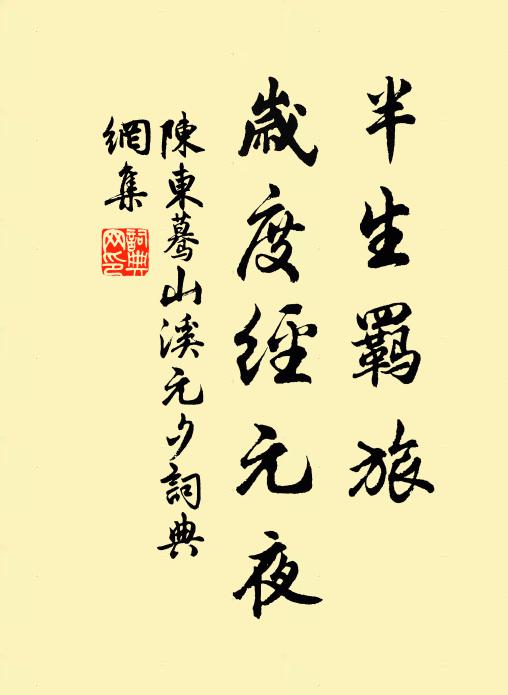 半生羈旅
歲度經元夜
陳東驀山溪元夕詞典
網集
詞典網印